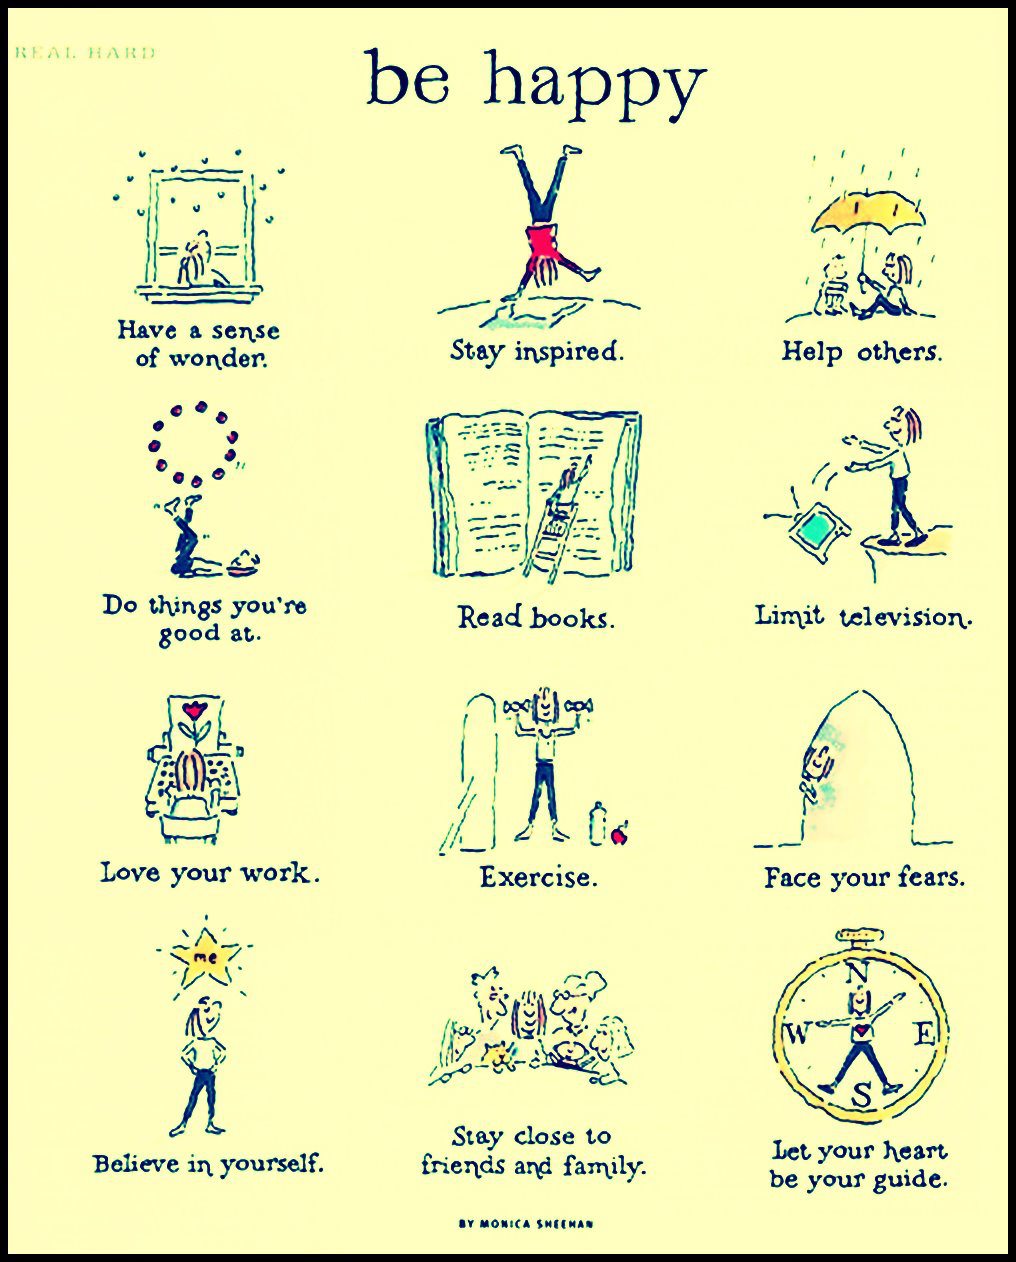 REAL HARD
be happy
Have a sense
of wonder.
Stay inspired.
Help others.
Do things you're
good at.
Read books.
Limit television.
Love your work.
Exercise.
Face your fears.
me
Believe in yourself.
Stay close to
friends and family.
N
W E
S
Let your heart
be your guide.
BY MONICA SHEEHAN